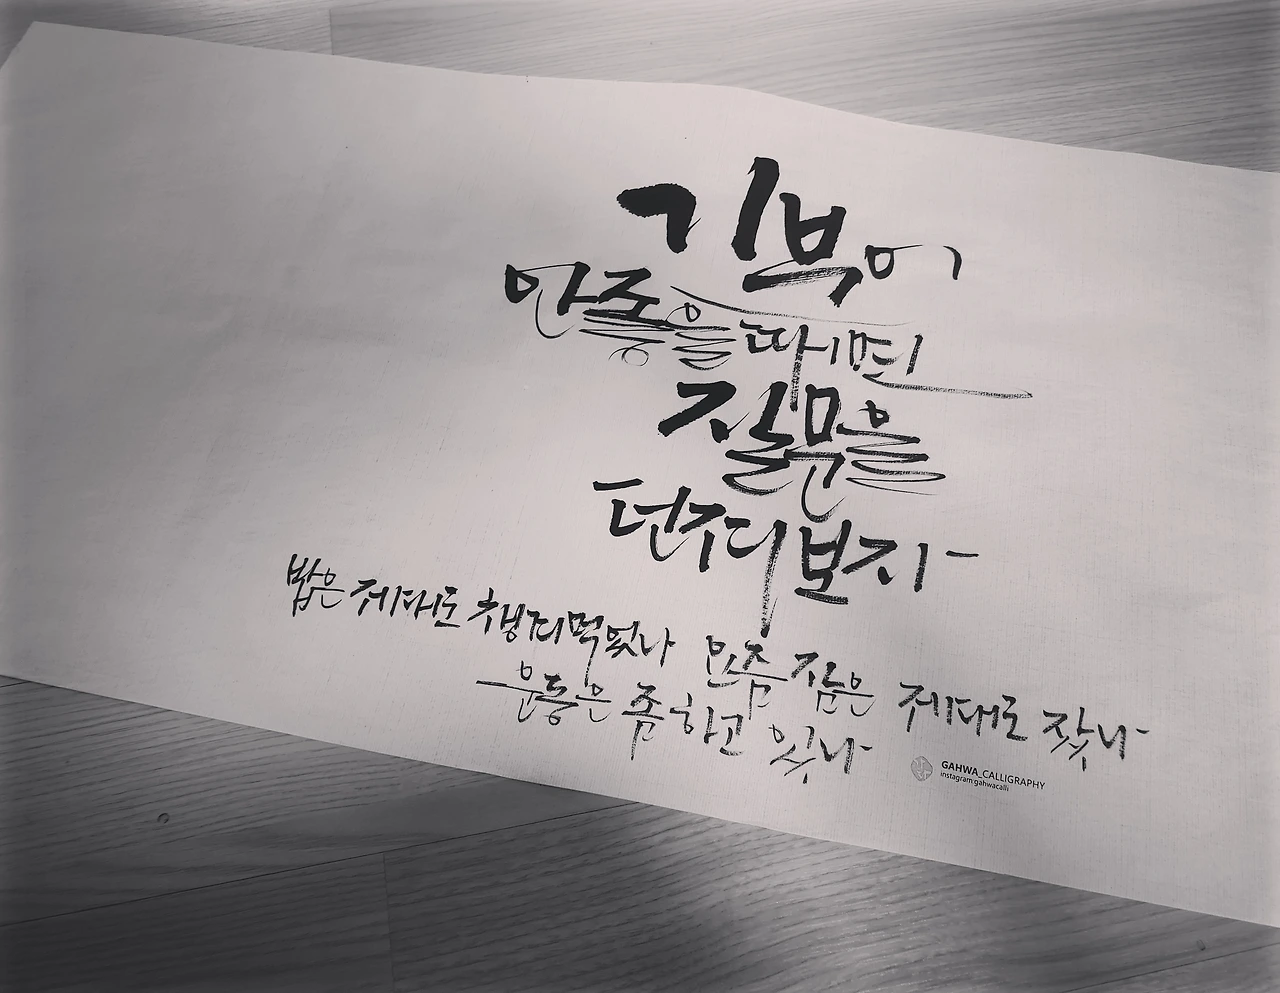 기분이
안좋을 때면
질문을
던져보자
밥은 제대로 챙겨먹었나 요즘 잠은 제대로 잤나
운동은 좀 하고 있나
GAHWA_CALLIGRAPHY
instagram:gahwacalli